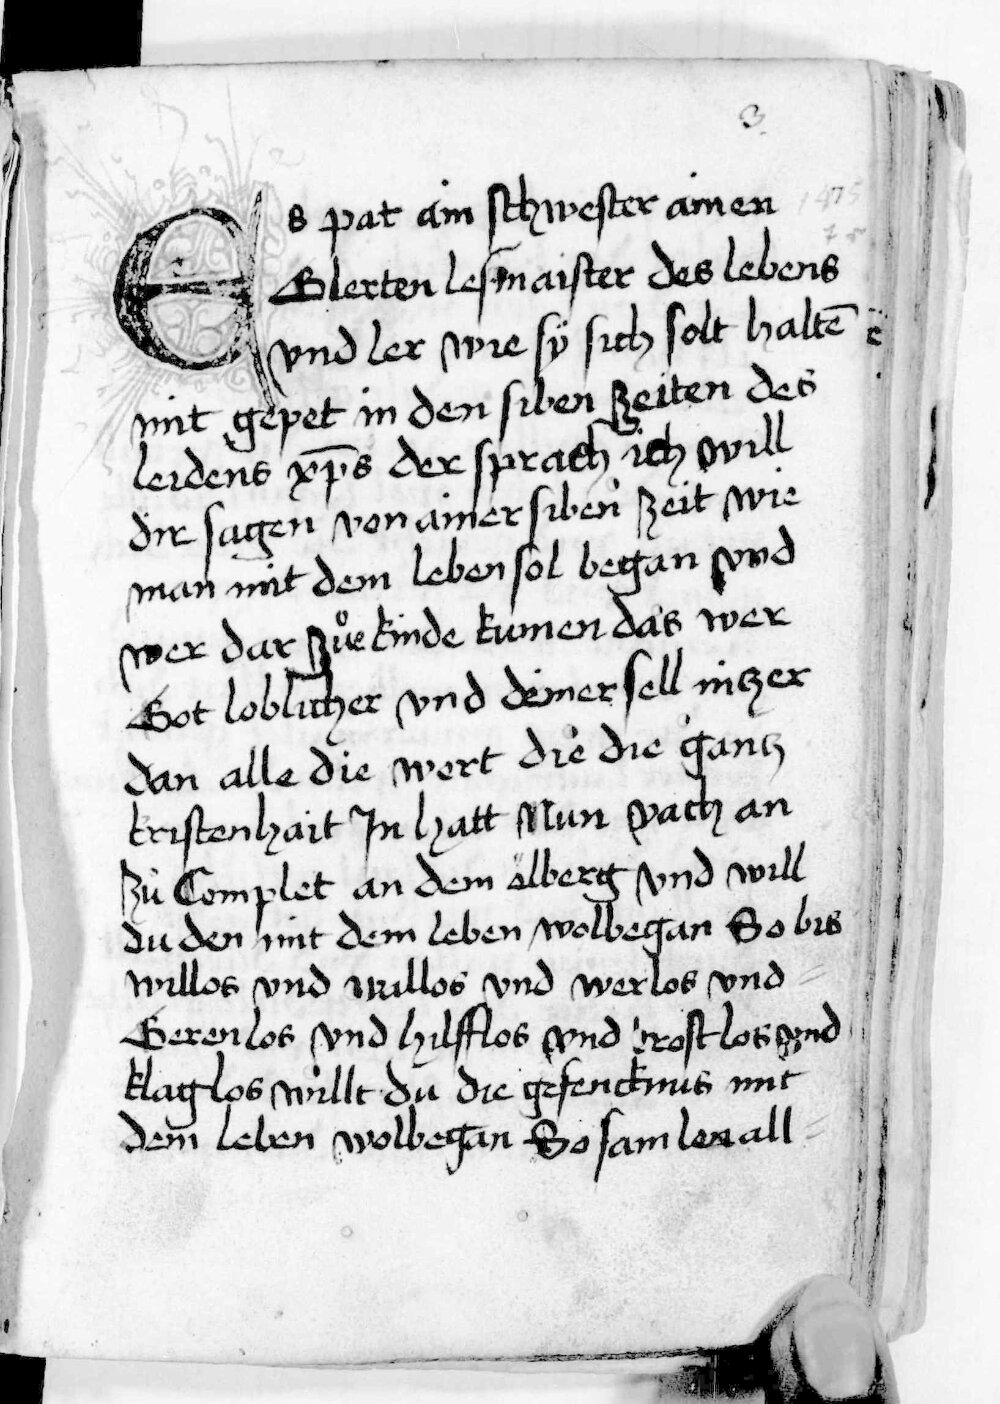 3.
Es pat ain schwester ainen
Glerten lesmaister des lebens
vnd ler wie sÿ sich solt haltē
mit gepet in den siben zeiten des
leidens xp̄s der sprach ich will
dir sagen von ainer siben zeit wie
man mit dem leben sol began vnd
wer dar zůe kinde kumen das wer
Got loblicher vnd deiner sell nitzer
dan alle die wert die die gantz
kristenhait In hatt Nun vach an
zů Complet an dem ölberg vnd will
du den mit dem leben wolbegan So bis
willos vnd willos vnd werlos vnd
Gerenlos vnd hilfflos vnd trostlos vnd
klaglos willt du die gefencknus mit
dem leben wolbegan So samlen all